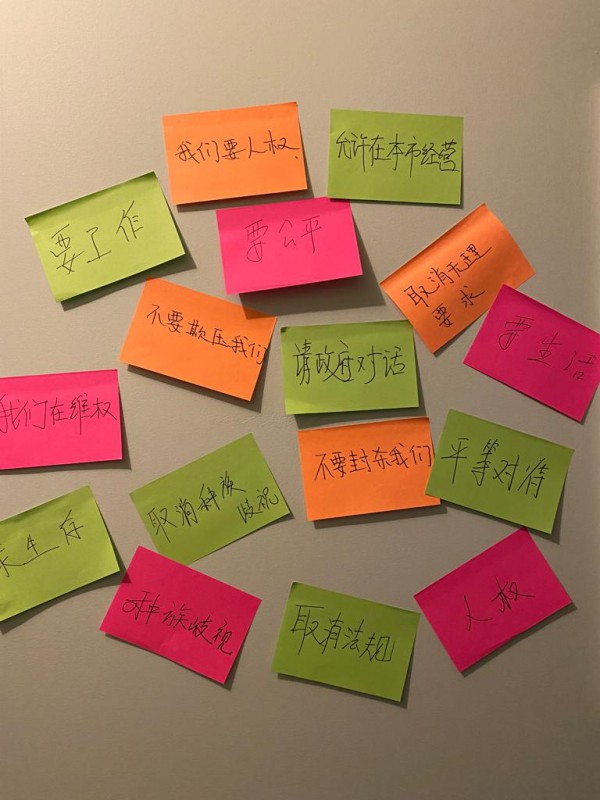 我们要人权.
允许在本市经营
要工作
要公平
取消无理
要求
不要欺压我们
请政府对话
要生活
我们在维权
不要封杀我们
平等对待
取消种族
歧视
生存
种族歧视
取消法规
人权